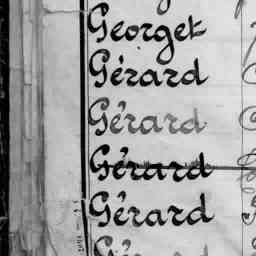 Georget
Gérard
Gérard
Gérard
Gérard
Gérard